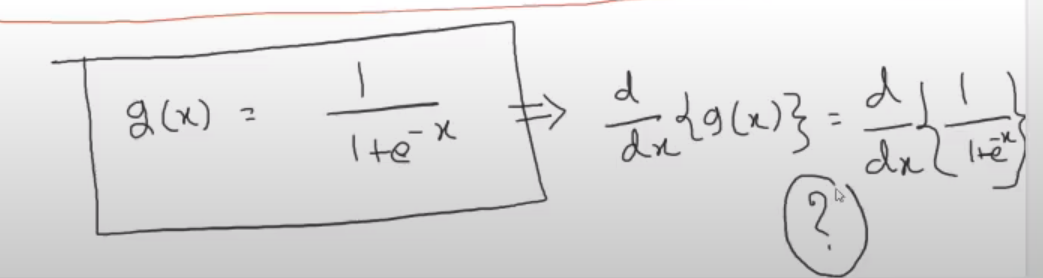 g(x) = 1/(1+e^-x) ⇒ d/dx {g(x)} = d/dx {1/(1+e^-x)}
?